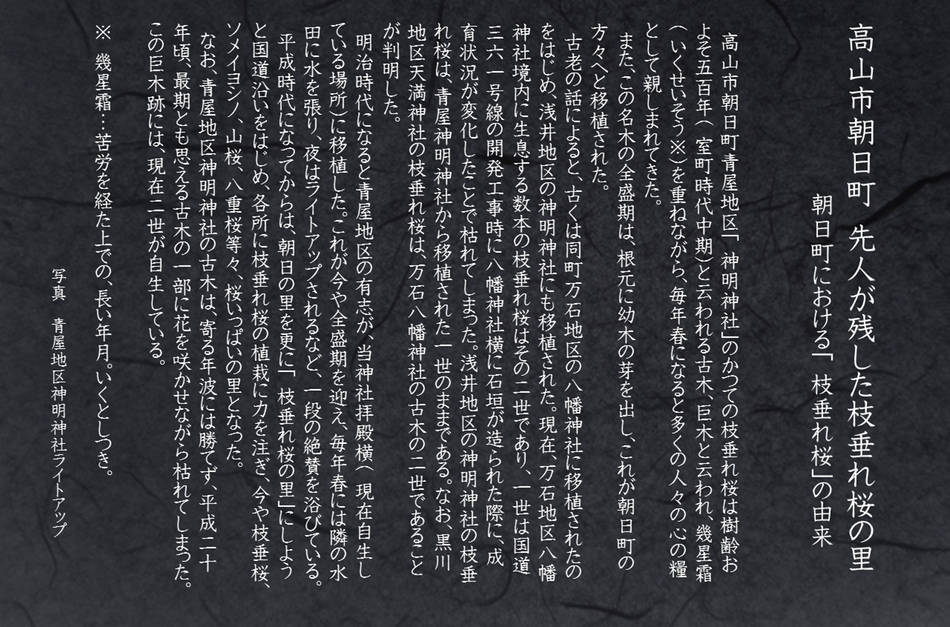 高山市朝日町 先人が残した枝垂れ桜の里
朝日町における「枝垂れ桜」の由来
高山市朝日町青屋地区「神明神社」のかつての枝垂れ桜は樹齢お
よそ五百年(室町時代中期)と云われる古木、巨木と云われ、幾星霜
(いくせいそう※)を重ねながら、毎年春になると多くの人々の心の糧
として親しまれてきた。
また、この名木の全盛期は、根元に幼木の芽を出し、これが朝日町の
方々へと移植された。
古老の話によると、古くは同町万石地区の八幡神社に移植されたの
をはじめ、浅井地区の神明神社にも移植された。現在、万石地区八幡
神社境内に生息する数本の枝垂れ桜はその二世であり、一世は国道
三六一号線の開発工事時に八幡神社横に石垣が造られた際に、成
育状況が変化したことで枯れてしまった。浅井地区の神明神社の枝垂
れ桜は、青屋神明神社から移植された一世のままである。なお、黒川
地区天満神社の枝垂れ桜は、万石八幡神社の古木の二世であること
が判明した。
明治時代になると青屋地区の有志が、当神社拝殿横(現在自生し
ている場所)に移植した。これが今や全盛期を迎え、毎年春には隣の水
田に水を張り、夜はライトアップされるなど、一段の絶賛を浴びている。
平成時代になってからは、朝日の里を更に「枝垂れ桜の里」にしよう
と国道沿いをはじめ、各所に枝垂れ桜の植栽に力を注ぎ、今や枝垂桜、
ソメイヨシノ、山桜、八重桜等々、桜いっぱいの里となった。
なお、青屋地区神明神社の古木は、寄る年波には勝てず、平成二十
年頃、最期とも思える古木の一部に花を咲かせながら枯れてしまった。
この巨木跡には、現在二世が自生している。
※ 幾星霜…苦労を経た上での、長い年月。いくとしつき。
写真 青屋地区神明神社ライトアップ